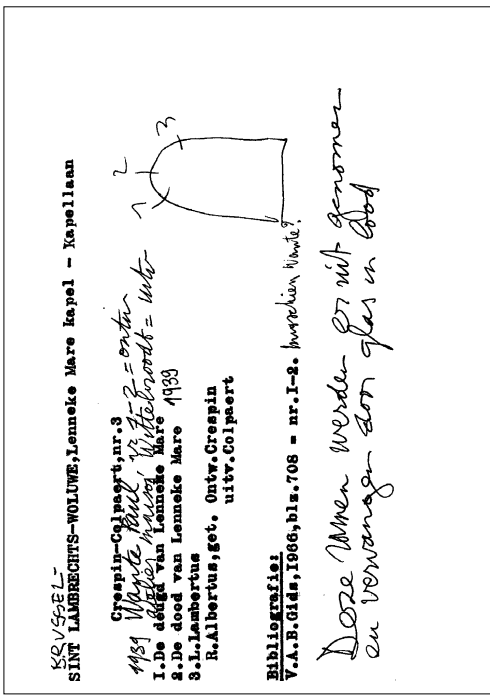 BRUSSEL-
SINT LAMBRECHTS-WOLUWE,Lenneke Mare kapel - Kapellaan
Crespin-Colpaert,nr.3
1939 Wante Paul, nr 1-2 = ontw
atelier maison Wittebroodt = uitv
1.De deugd van Lenneke Mare
2.De dood van Lenneke Mare 1939
3.L.Lambertus
R.Albertus,get. Ontw.Crespin
uitv.Colpaert
1 2 3
Bibliografie:
V.A.B.Gids,1966,blz.708 - nr.I-2. misschien Wante?
Deze ramen werden er uit genomen
en vervangen door glas in lood